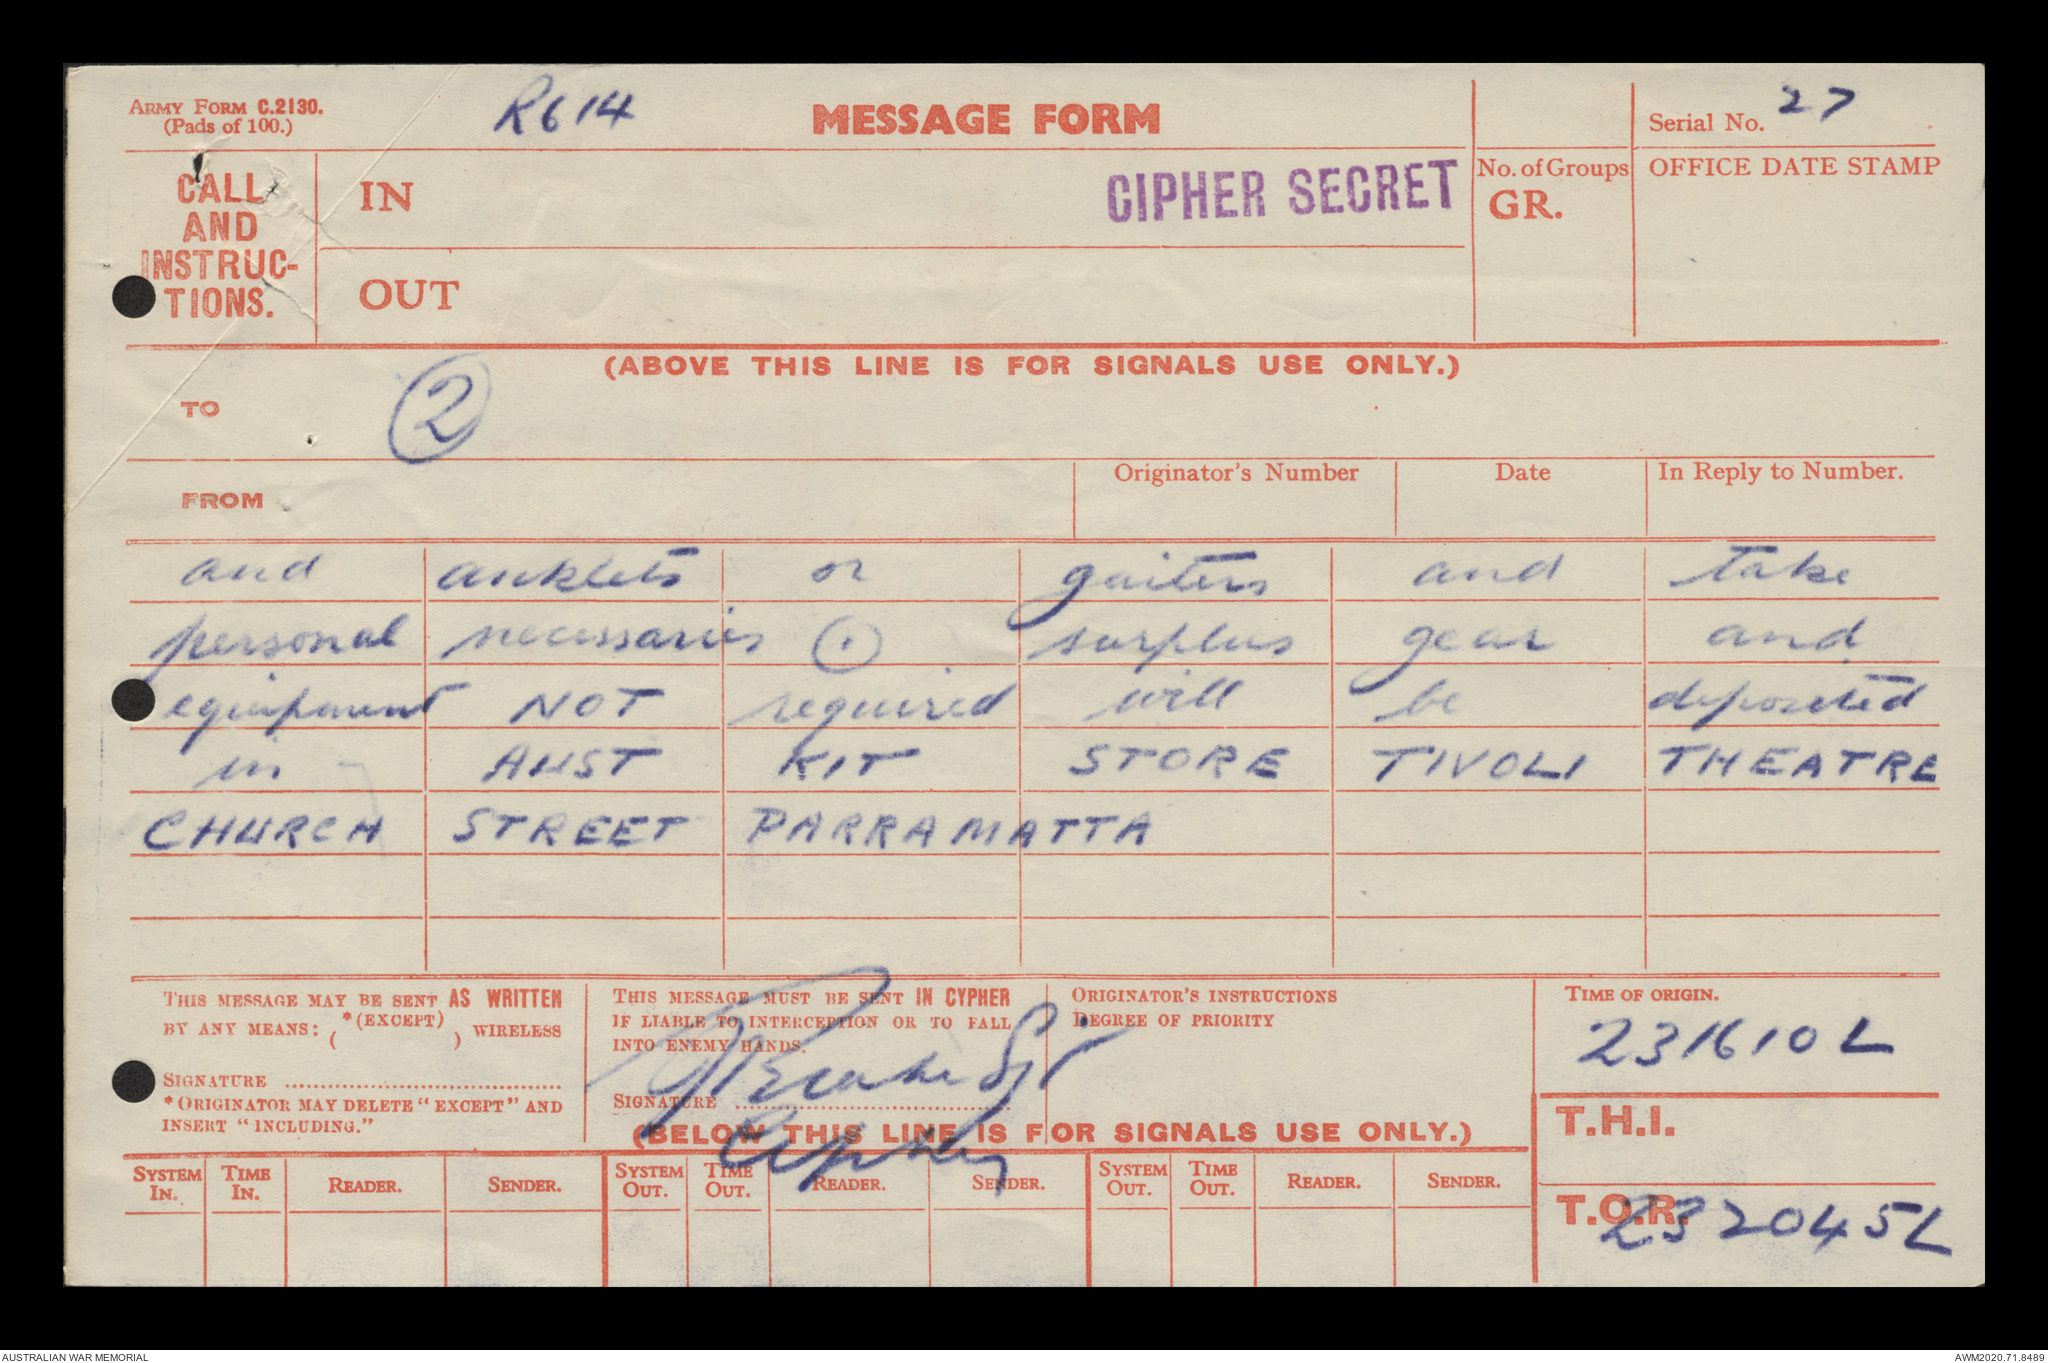 ARMY FORM C.2130.
(Pads of 100.)
R614
MESSAGE FORM
Serial No. 27
CALL
AND
INSTRUC-
TIONS.
IN
CIPHER SECRET
No. of Groups
GR.
OFFICE DATE STAMP
OUT
(ABOVE THIS LINE IS FOR SIGNALS USE ONLY.)
TO
2
FROM
Originator's Number
Date
In Reply to Number.
and anklets or gaiters and take
personal necessaries (.) surplus gear and
equipment NOT required will be deposited
in AUST KIT STORE TIVOLI THEATRE
CHURCH STREET PARRAMATTA
THIS MESSAGE MAY BE SENT AS WRITTEN
BY ANY MEANS: ( *(EXCEPT) ) WIRELESS
SIGNATURE
*ORIGINATOR MAY DELETE "EXCEPT" AND
INSERT "INCLUDING."
THIS MESSAGE MUST BE SENT IN CYPHER
IF LIABLE TO INTERCEPTION OR TO FALL
INTO ENEMY HANDS.
SIGNATURE
ORIGINATOR'S INSTRUCTIONS
DEGREE OF PRIORITY
TIME OF ORIGIN.
231610L
T.H.I.
T.O.R. 232045L
(BELOW THIS LINE IS FOR SIGNALS USE ONLY.)
SYSTEM IN. TIME IN. READER. SENDER. SYSTEM OUT. TIME OUT. READER. SENDER. SYSTEM OUT. TIME OUT. READER. SENDER.
AUSTRALIAN WAR MEMORIAL
AWM2020.71.8489